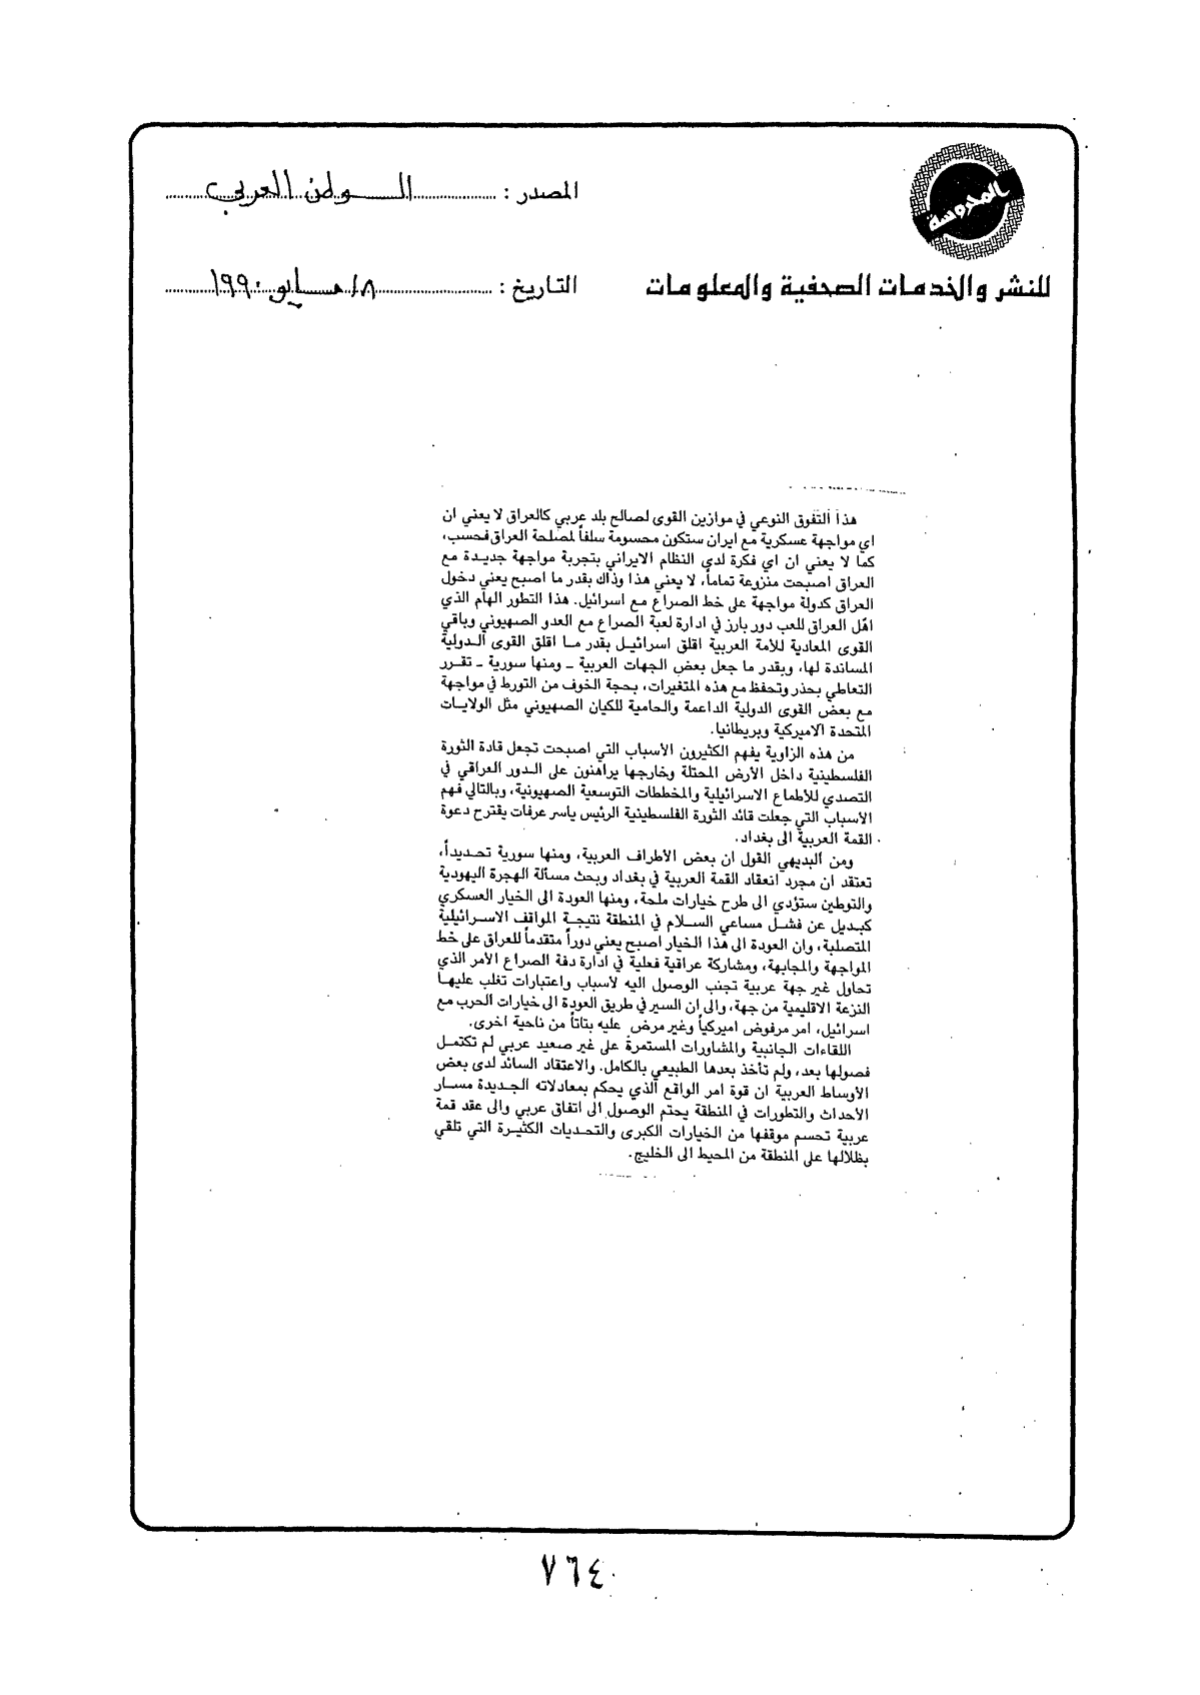 المحروسة
المصدر : الوطن العربي
للنشر والخدمات الصحفية والمعلومات
التاريخ : ١٨ مايو ١٩٩٠
هذا التفوق النوعي في موازين القوى لصالح بلد عربي كالعراق لا يعني ان
اي مواجهة عسكرية مع ايران ستكون محسومة سلفاً لمصلحة العراق فحسب،
كما لا يعني ان اي فكرة لدى النظام الايراني بتجربة مواجهة جديدة مع
العراق اصبحت منزوعة تماماً، لا يعني هذا وذاك بقدر ما اصبح يعني دخول
العراق كدولة مواجهة على خط الصراع مع اسرائيل. هذا التطور الهام الذي
اهّل العراق للعب دور بارز في ادارة لعبة الصراع مع العدو الصهيوني وباقي
القوى المعادية للأمة العربية اقلق اسرائيل بقدر ما اقلق القوى الدولية
المساندة لها، وبقدر ما جعل بعض الجهات العربية ـ ومنها سورية ـ تقرر
التعاطي بحذر وتحفظ مع هذه المتغيرات، بحجة الخوف من التورط في مواجهة
مع بعض القوى الدولية الداعمة والحامية للكيان الصهيوني مثل الولايات
المتحدة الاميركية وبريطانيا.
من هذه الزاوية يفهم الكثيرون الأسباب التي اصبحت تجعل قادة الثورة
الفلسطينية داخل الأرض المحتلة وخارجها يراهنون على الدور العراقي في
التصدي للأطماع الاسرائيلية والمخططات التوسعية الصهيونية، وبالتالي فهم
الأسباب التي جعلت قائد الثورة الفلسطينية الرئيس ياسر عرفات يقترح دعوة
القمة العربية الى بغداد.
ومن البديهي القول ان بعض الأطراف العربية، ومنها سورية تحديداً،
تعتقد ان مجرد انعقاد القمة العربية في بغداد وبحث مسألة الهجرة اليهودية
والتوطين ستؤدي الى طرح خيارات ملحة، ومنها العودة الى الخيار العسكري
كبديل عن فشل مساعي السلام في المنطقة نتيجة المواقف الاسرائيلية
المتصلبة، وان العودة الى هذا الخيار اصبح يعني دوراً متقدماً للعراق على خط
المواجهة والمجابهة، ومشاركة عراقية فعلية في ادارة دفة الصراع الأمر الذي
تحاول غير جهة عربية تجنب الوصول اليه لأسباب واعتبارات تغلب عليها
النزعة الاقليمية من جهة، والى ان السير في طريق العودة الى خيارات الحرب مع
اسرائيل، امر مرفوض اميركياً وغير مرض عليه بتاتاً من ناحية اخرى.
اللقاءات الجانبية والمشاورات المستمرة على غير صعيد عربي لم تكتمل
فصولها بعد، ولم تأخذ بعدها الطبيعي بالكامل. والاعتقاد السائد لدى بعض
الأوساط العربية ان قوة امر الواقع الذي يحكم بمعادلاته الجديدة مسار
الأحداث والتطورات في المنطقة يحتم الوصول الى اتفاق عربي والى عقد قمة
عربية تحسم موقفها من الخيارات الكبرى والتحديات الكثيرة التي تلقي
بظلالها على المنطقة من المحيط الى الخليج.
٧٦٤